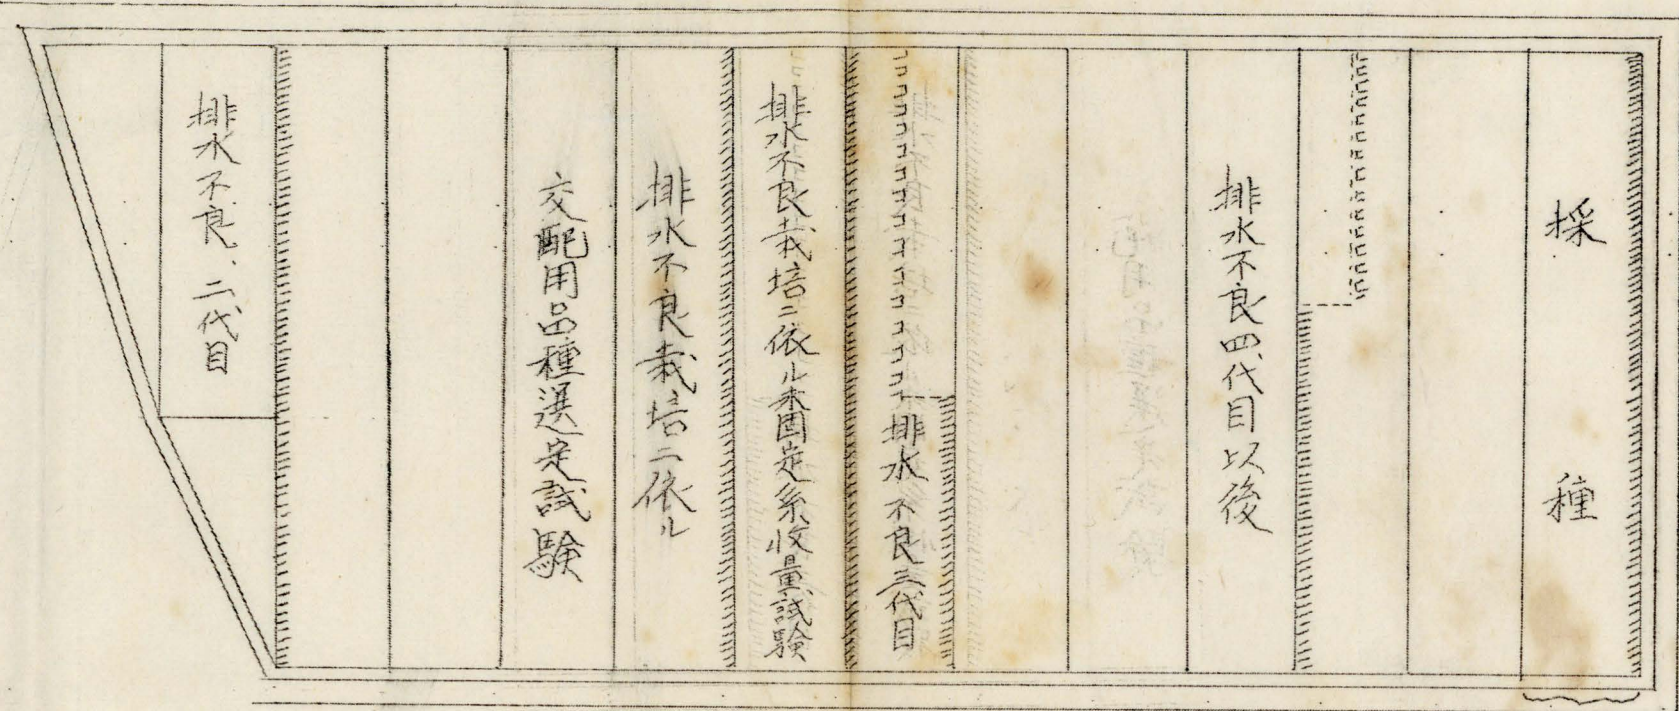 採種
排水不良四代目以後
排水不良三代目
排水不良栽培ニ依ル未固定系收量試験
排水不良栽培ニ依ル
交配用品種選定試験
排水不良、二代目